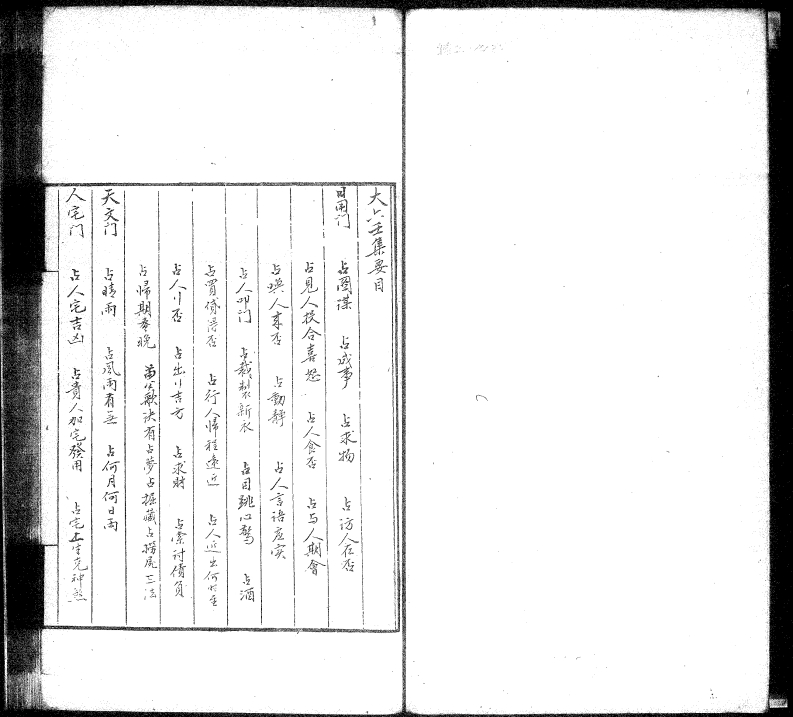 大六壬集要目
日用门 占圖謀 占成事 占求物 占访人在否
占見人投合喜怒 占人食否 占与人期會
占喚人來否 占動靜 占人言语虛实
占人叩门 占裁製新衣 占目跳心驚 占酒
占買貸得否 占行人歸程遠近 占人近出何时至
占人行否 占出行吉方 占求財 占索讨债負
占歸期早晚 苗公歌诀有占夢占掘藏占撈尾三法
天文门 占晴雨 占風雨有无 占何月何日雨
人宅门 占人宅吉凶 占貴人加宅發用 占宅上生克神煞